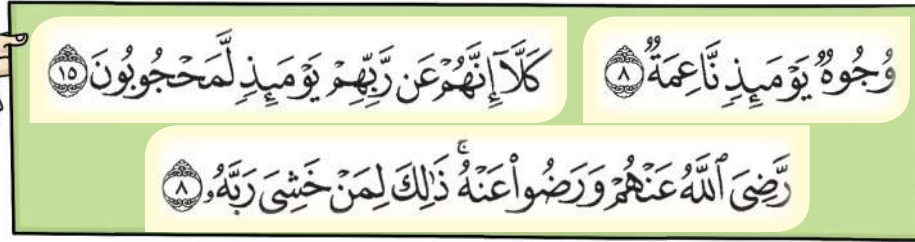 وُجُوهٌ يَوْمَئِذٍ نَّاعِمَةٌ ٨
كَلَّآ إِنَّهُمْ عَن رَّبِّهِمْ يَوْمَئِذٍ لَّمَحْجُوبُونَ ١٥
رَّضِىَ ٱللَّهُ عَنْهُمْ وَرَضُوا۟ عَنْهُ ۚ ذَٰلِكَ لِمَنْ خَشِىَ رَبَّهُۥ ٨